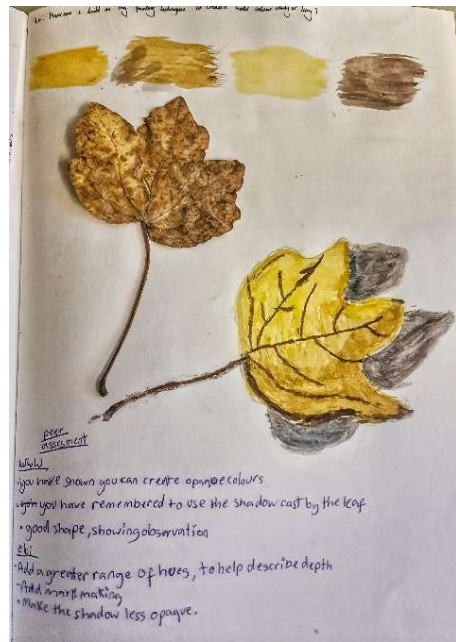 Lo: How can I build on my painting techniques to create a watercolour study of
peer
assesment
WWW
• you have shown you can create opaque colours
• you have remembered to use the shadow cast by the leaf
• good shape, showing observation
ebi
• Add a greater range of hues, to help describe depth
• Add mark making
• Make the shadow less opaque.